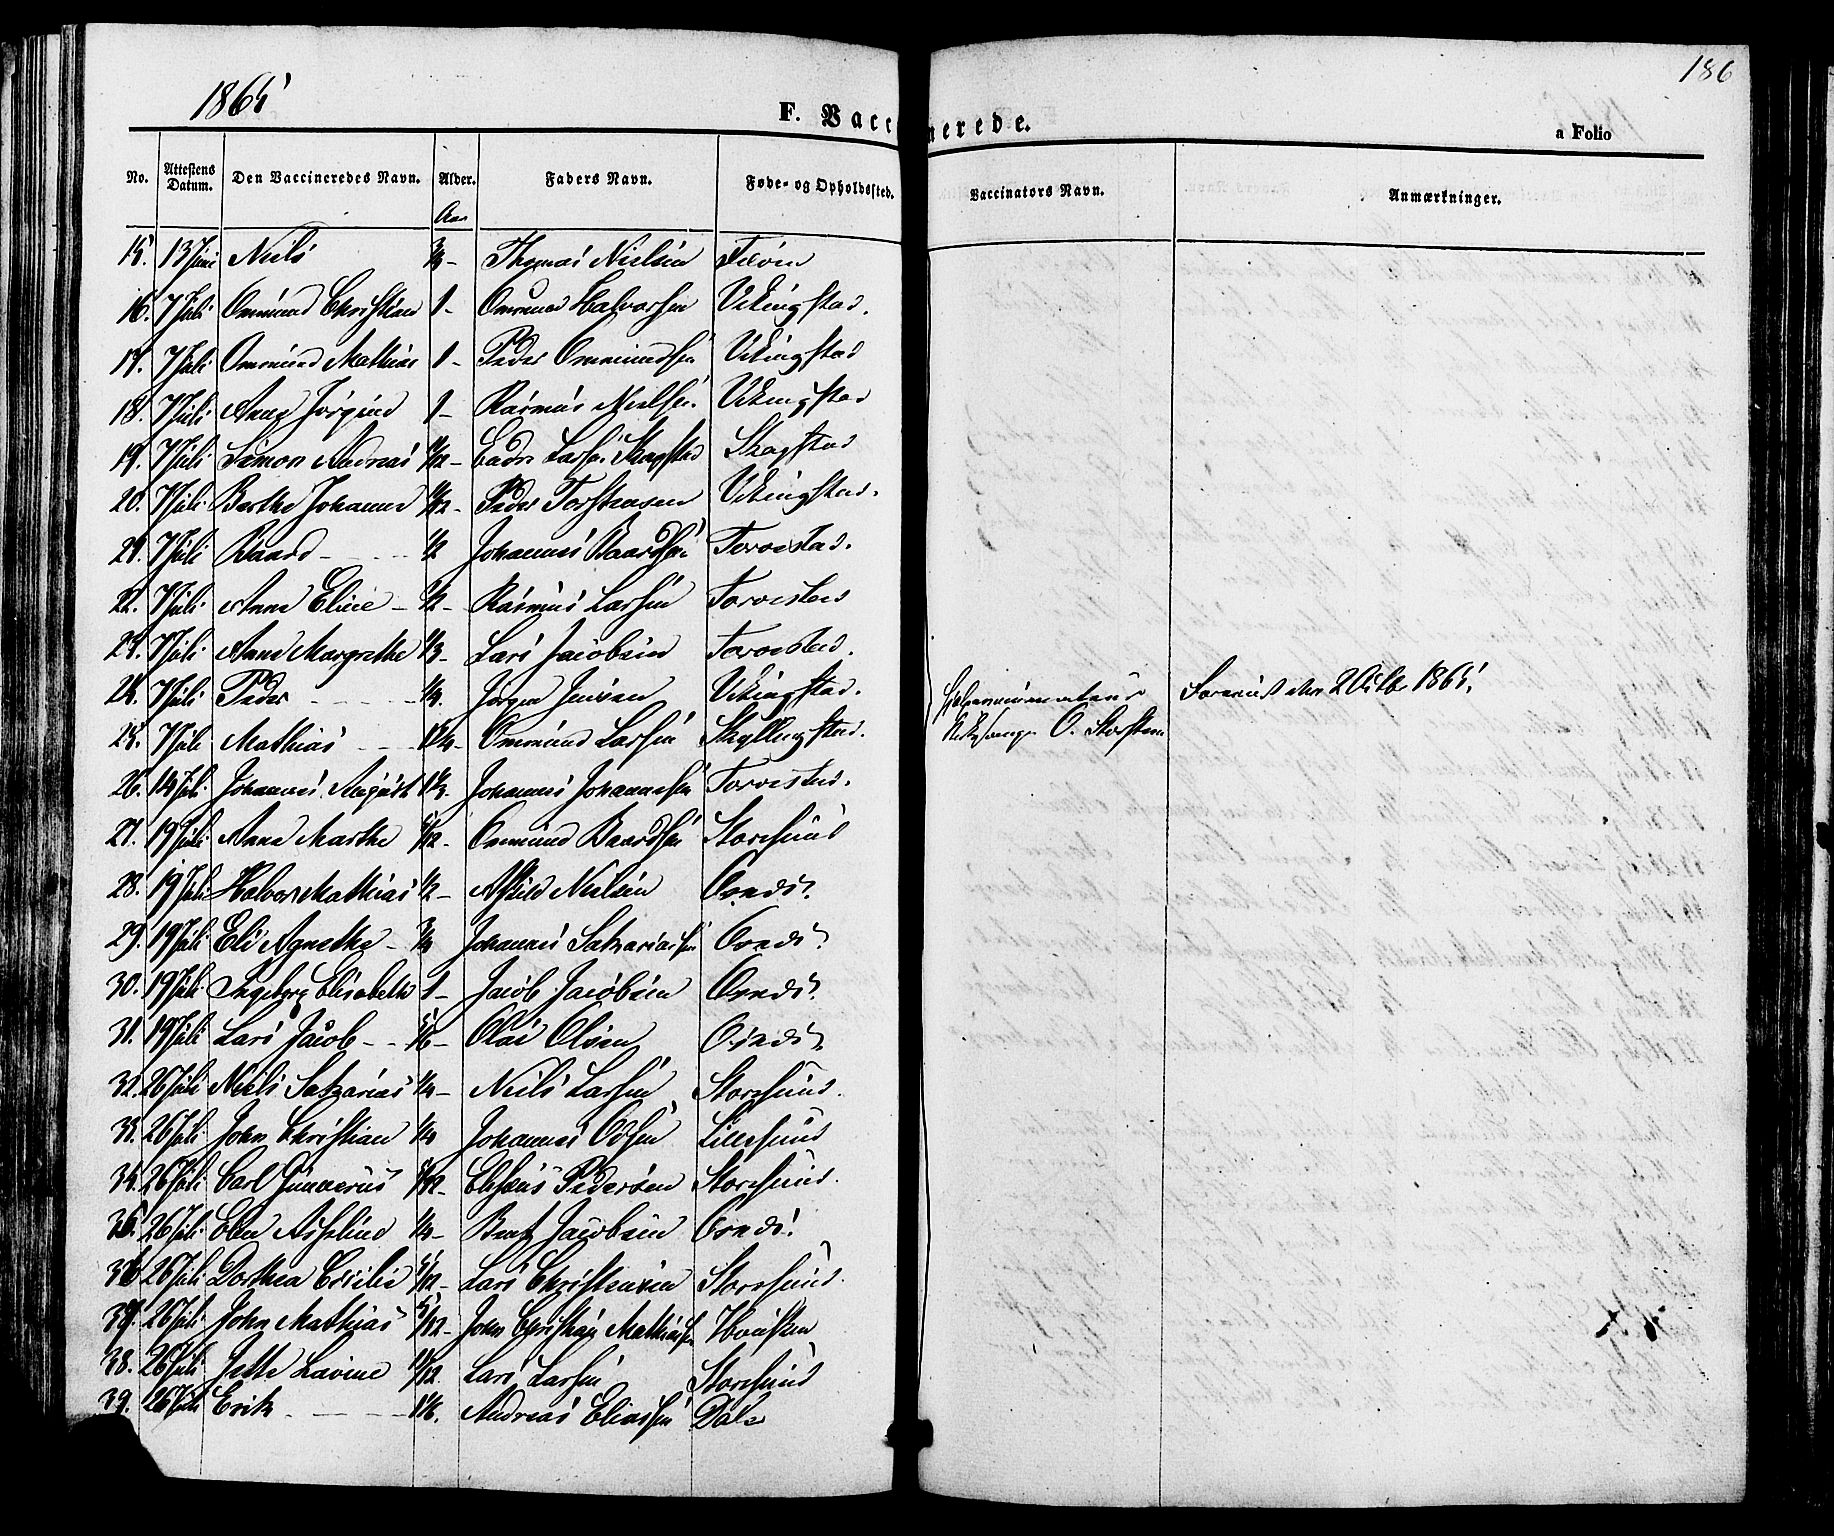 1865
186
F. Vaccinerede.
a Folio
No. Attestens Datum. Den Vaccineredes Navn. Alder. Faders Navn. Føde- og Opholdssted. Vaccinators Navn. Anmærkninger.
Aar
15. 13 Juni Niels 3/4 - Thomas Nielsen
16. 7 Juli Ommund Christian 1 - Ommund Halvorsen Vikingstad.
17. 7 Juli Ommund Mathias 1 - Peder Ommundsen Vikingstad
18. 7 Juli Anne Jørgine 1 - Rasmus Nielsen. Vikingstad
19. 7 Juli Simon Andreas Larsen Skogstad Skogstad
20. 7 Juli Berthe Johanne Peder Torstensen Vikingstad.
21. 7 Juli Baard - 1/2 Johannes Baardsen Torvestad.
22. 7 Juli Anne Eline - 1/2 - Rasmus Larsen Torvestad
23. 7 Juli Anne Margrethe 1/3 - Lars Jacobsen Torvestad.
24. 7 Juli Peder - 1/4. Jørgen Jensen Vikingstad.
25. 7 Juli Mathias - 1 1/4 - Ommund Larsen Skyllingstad.
Hjelpevaccinateur
Kirkesanger O. Storsteen
Foreviist den 2 Octbr 1865.
26. 14 Juli Johannes August 1 1/3. Johannes Johannesen Torvestad.
27. 19 Juli Anna Marthe 5/12 - Ommund Baardsen Storesund
28. 19 Juli Halvor Mathias 1/2 - Nielsen
29. 19 Juli Eli Agnethe - 3/4 Johannes Sakariassen
30. 19 Juli Ingeborg Elisabeth 1 - Jacob Jacobsen
31. 19 Juli Lars Jacob - 5/6 - Olai Olsen
32. 26 Juli Niels Sakarias 1/4 - Niels Larsen Storesund.
33. 26 Juli John Christian 1/4 Johannes Odsen Lillesund
34. 26 Juli Carl Gunnerus 5/12 - Elisæus Pedersen Storesund.
35. 26 Juli Asleline 1/4 - Bent Jacobsen
36. 26 Juli Dorthea Cecilie 5/12 - Lars Christensen Storesund.
37. 26 Juli John Mathias 5/12 - John Christian Mathiassen
38. 26 Juli Jette Lavine 11/12 Lars Larsen Storesund
39. 26 Juli Erik - 1 1/6. Andreas Eliassen Dale